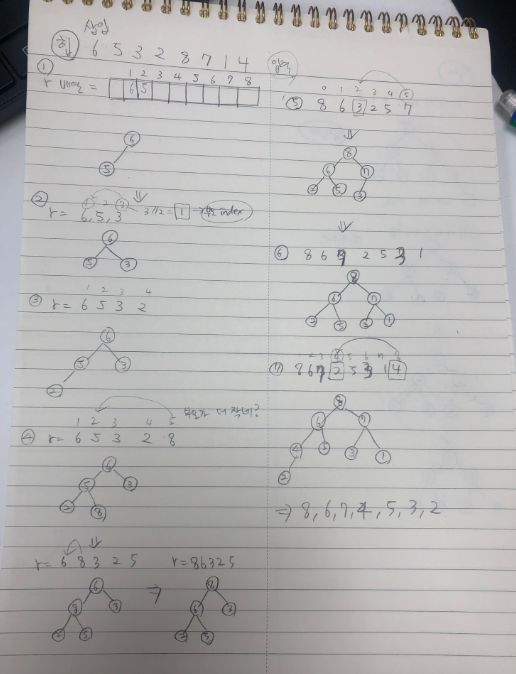 힙 삽입
6 5 3 2 8 7 1 4
①
1 2 3 4 5 6 7 8
r 배열 = 6 5
6
5
②
1 2 3
r= 6, 5, 3
3//2 = 1 → 부모 index
6
5 3
③
1 2 3 4
r= 6 5 3 2
6
5 3
2
④
1 2 3 4 5
r= 6 5 3 2 8
부모가 더 작네?
6
5 3
2 8
r= 6 8 3 2 5
r=86325
6
8 3
2 5
⇒
8
6 3
2 5
0 1 2 3 4 5
⑤ 8 6 3 2 5 7
8
6 7
2 5 3
⑥ 8 6 7 2 5 3 1
8
6 7
2 5 3 1
⑦ 8 6 7 2 5 3 1 4
8
6 7
4 5 3 1
2
⇒ 8, 6, 7, 4, 5, 3, 2